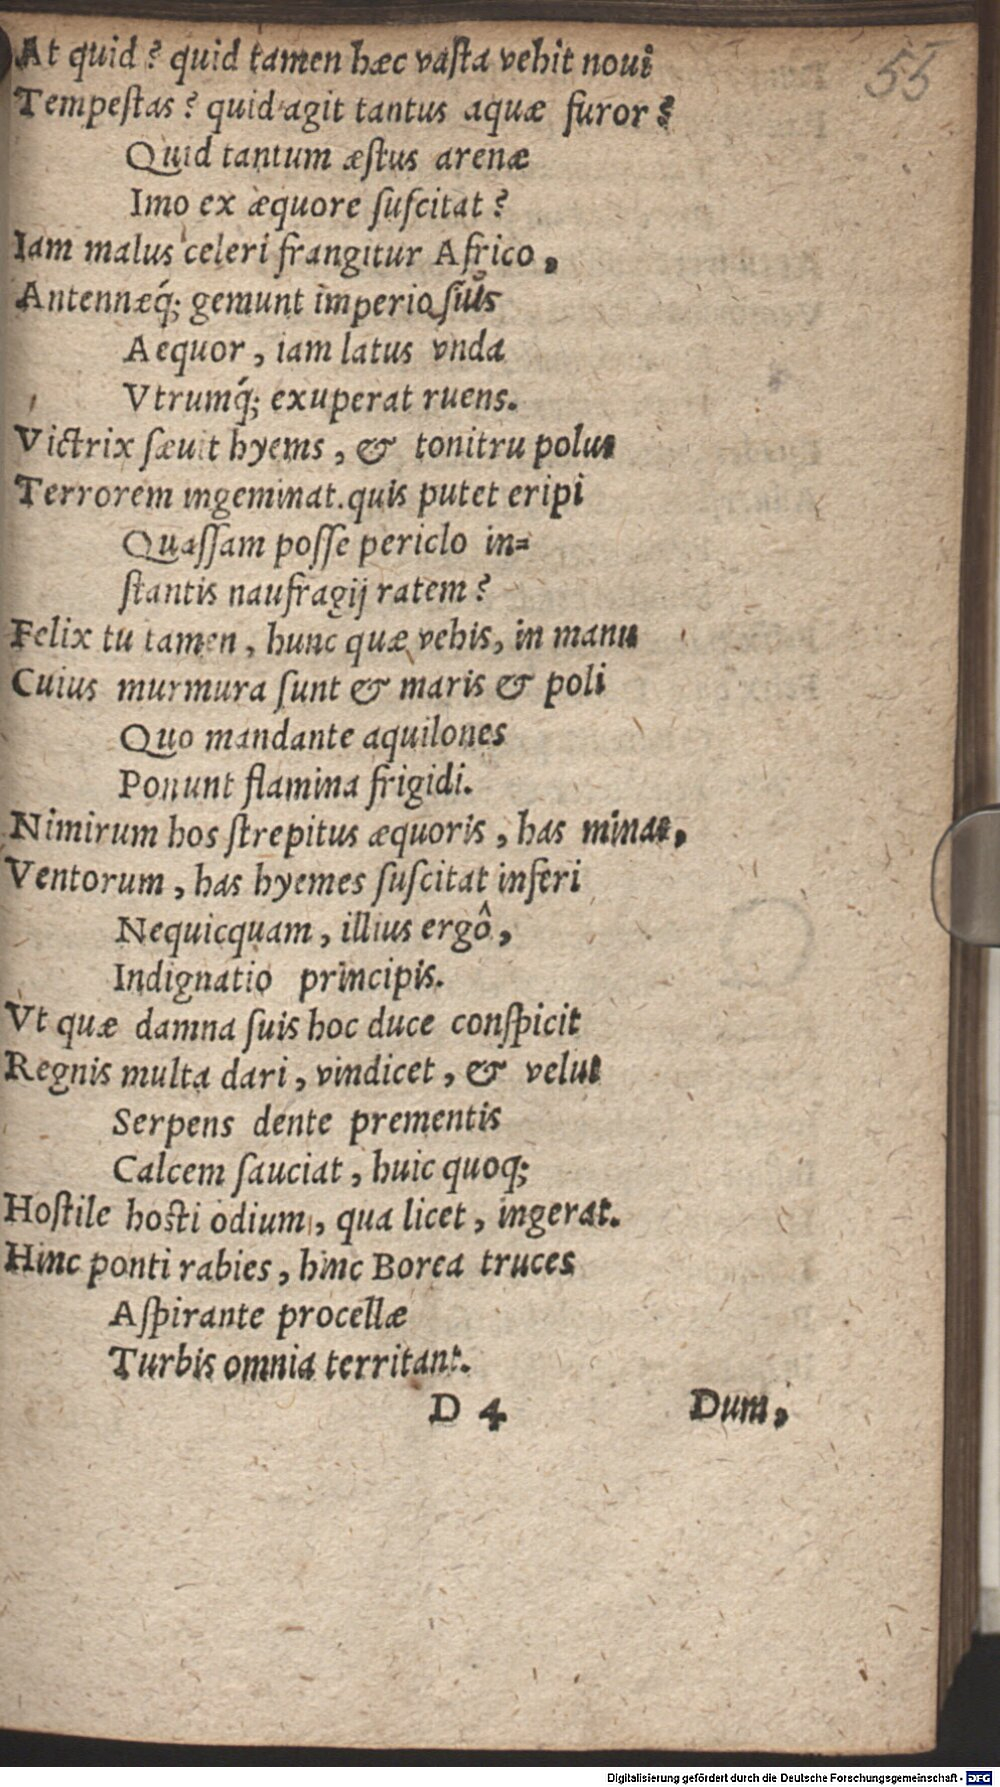 55
At quid? quid tamen hæc vasta vehit noui
Tempestas? quid agit tantus aquæ furor?
Quid tantum æstus arenæ
Imo ex æquore suscitat?
Iam malus celeri frangitur Africo,
Antennæq́; gemunt imperiosius
Aequor, iam latus vnda
Vtrumq́; exuperat ruens.
Victrix sæuit hyems, & tonitru polus
Terrorem ingeminat. quis putet eripi
Quassam posse periclo in=
stantis naufragij ratem?
Felix tu tamen, hunc quæ vehis, in manu
Cuius murmura sunt & maris & poli
Quo mandante aquilones
Ponunt flamina frigidi.
Nimirum hos strepitus æquoris, has minas,
Ventorum, has hyemes suscitat inferi
Nequicquam, illius ergô,
Indignatio principis.
Vt quæ damna suis hoc duce conspicit
Regnis multa dari, vindicet, & velut
Serpens dente prementis
Calcem sauciat, huic quoq;
Hostile hosti odium, qua licet, ingerat.
Hinc ponti rabies, hinc Borea truces
Aspirante procellæ
Turbis omnia territant.
D 4 Dum,
Digitalisierung gefördert durch die Deutsche Forschungsgemeinschaft - DFG